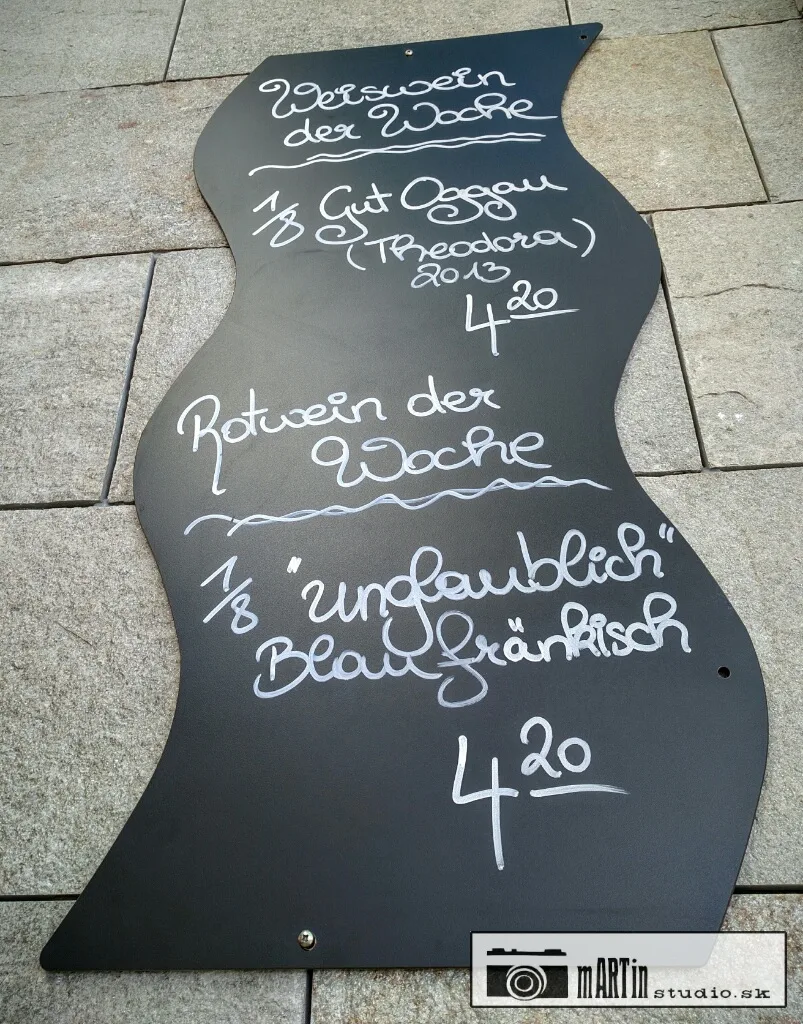 Weiswein
der Woche
1/8 Gut Oggau
(Theodora)
2013
4 20
Rotwein der
Woche
1/8 "unglaublich"
Blaufränkisch
4 20
mARTin studio.sk